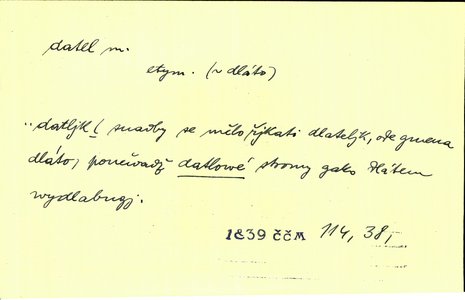 datel m.
etym. (v dláto)
„datljk ( snadby se mělo řjkati dlateljk, ode gmena
dláto, poněwadž datlowé stromy gako dlátem
wydlabugj.
1839 ČČM 114, 38,